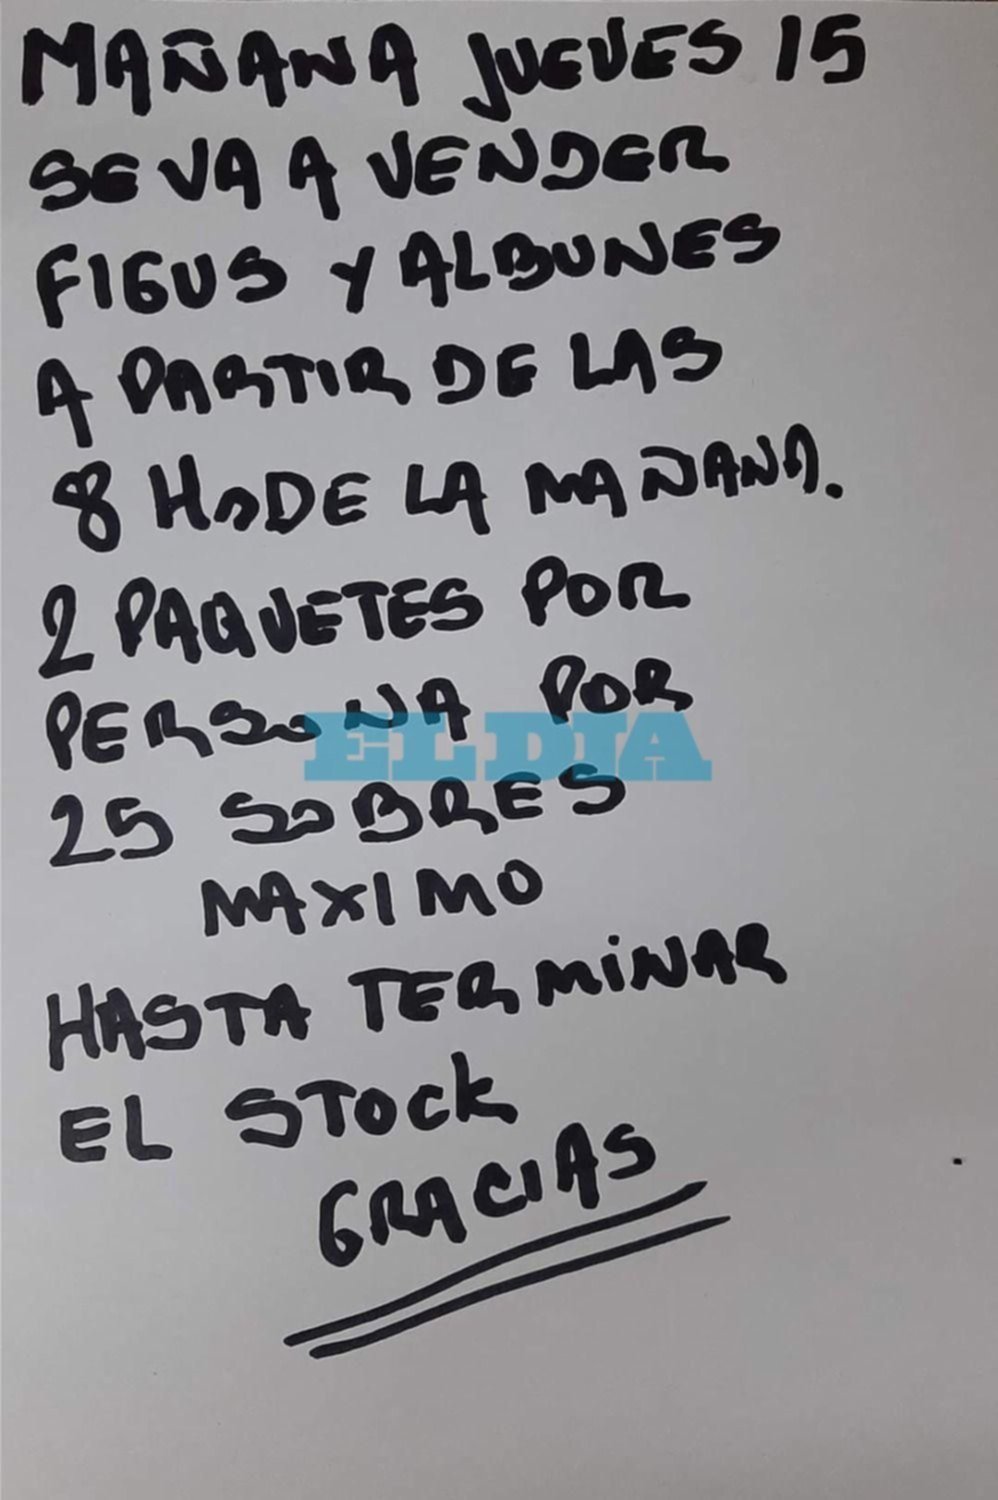 MAÑANA JUEVES 15
SE VA A VENDER
FIGUS Y ALBUNES
A PARTIR DE LAS
8 HS DE LA MAÑANA.
2 PAQUETES POR
PERSONA POR
EL DIA
25 SOBRES
MAXIMO
HASTA TERMINAR
EL STOCK
GRACIAS